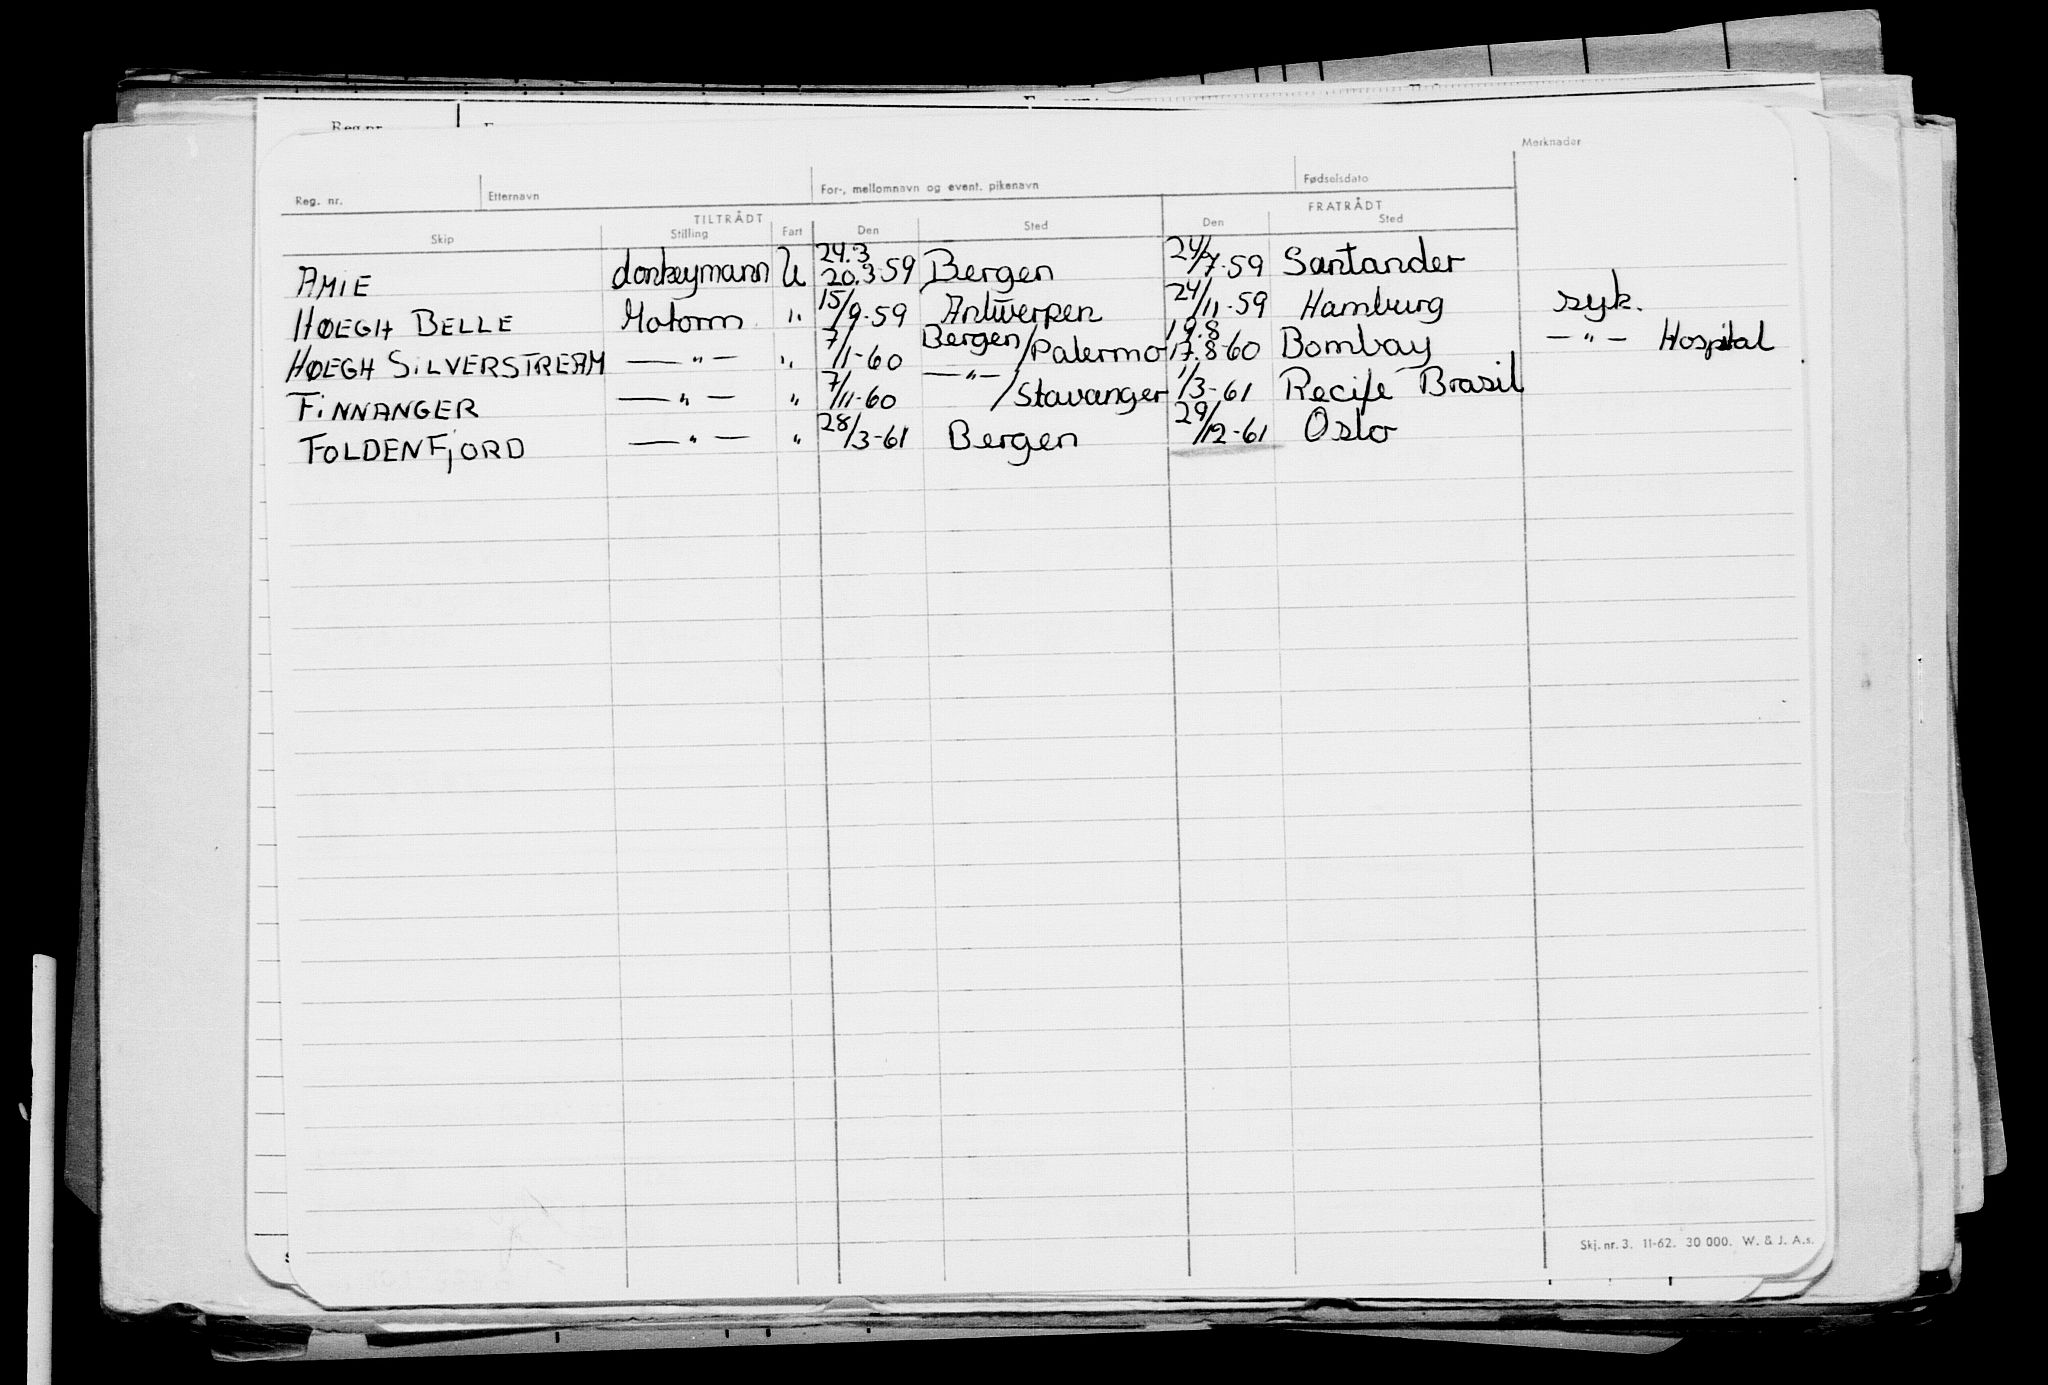 Reg.nr.
Merknader
Reg. nr. Etternavn For-, mellomnavn og event. pikenavn Fødselsdato
TILTRÅDT FRATRÅDT
Skip Stilling Fart Den Sted Den Sted
AMIE donkeymann U 24.3 20.3.59 Bergen 24/7-59 Santander
HØEGH BELLE Motorm " 15/9-59 Antwerpen 24/11-59 Hamburg syk.
HØEGH SILVERSTREAM — " — " 7/1-60 Bergen/Palermo 19.8 17.8-60 Bombay — " — Hospital
FINNANGER — " — " 7/11-60 — " —/Stavanger 1/3-61 Recife Brasil
FOLDENFJORD — " — " 28/3-61 Bergen 29/12-61 Oslo
Skj. nr. 3. 11-62. 30 000. W. & J. A.s.